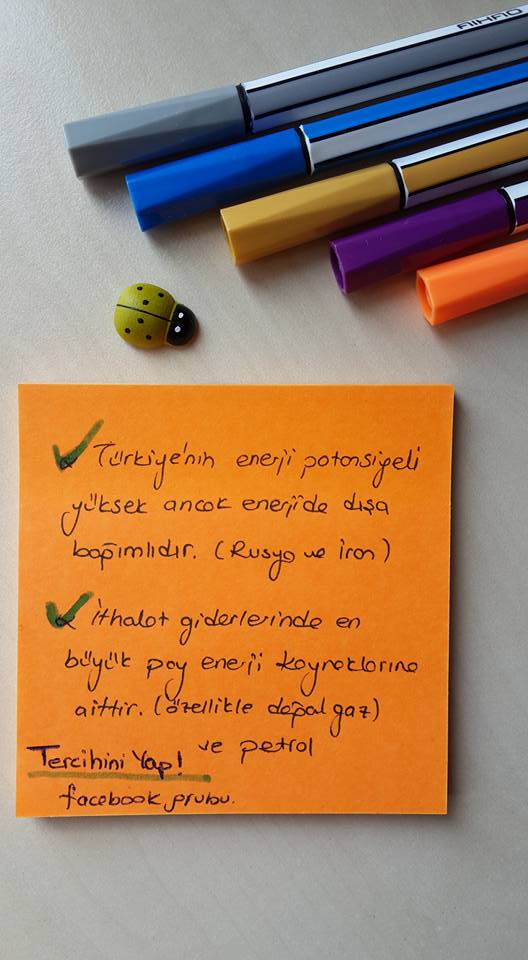 Türkiye'nin enerji potansiyeli
yüksek ancak enerjide dışa
bağımlıdır. (Rusya ve İran)
İthalat giderlerinde en
büyük pay enerji kaynaklarına
aittir. (özellikle doğal gaz)
ve petrol
Tercihini Yap!
facebook grubu.